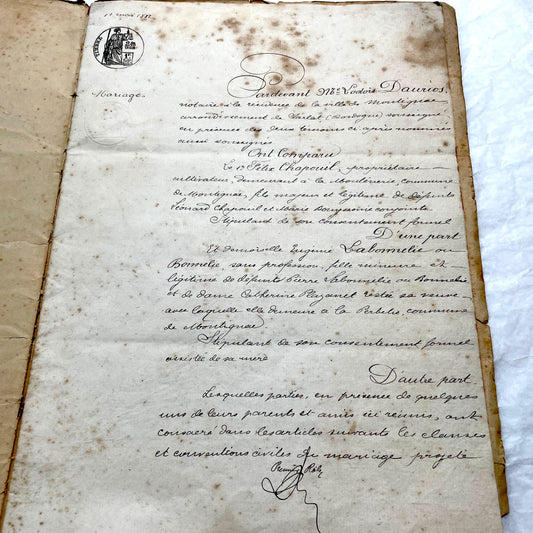 11 mai 1892
TIMBRE
Mariage
Pardevant Me Ludovic Dauriac,
notaire à la résidence de la ville de Montignac
arrondissement de Sarlat (Dordogne) soussigné
en présence des deux témoins ci après nommés
aussi soussignés
Ont Comparu
Le Sr Félix Chapouil, propriétaire
cultivateur, demeurant à la commune
de Montignac, fils majeur et légitime de défunts
Léonard Chapouil et Marie conjoints
Stipulant de son consentement formel
D'une part
Et demoiselle Eugénie Labonnelie ou
Bonnelie, sans profession, fille mineure et
légitime de défunt Pierre Labonnelie ou Bonnelie
et de dame Catherine restée sa veuve
avec laquelle elle demeure à la commune
de Montignac
Stipulant de son consentement formel
assistée de sa mère
D'autre part
Lesquelles parties, en présence de quelques
uns de leurs parents et amis ici réunis, ont
consacré dans les articles suivants les clauses
et conventions civiles du mariage projeté